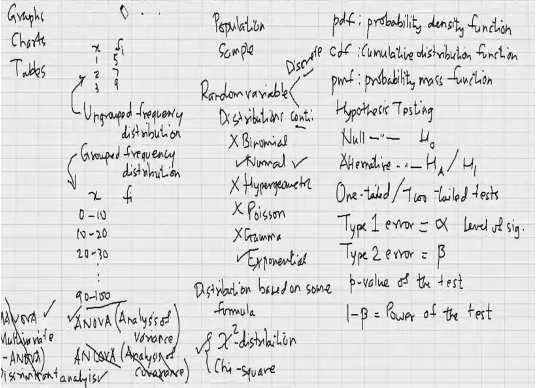 Graphs
Charts
Tables
x fi
1 5
2 7
3 9
Ungrouped frequency
distribution
Grouped frequency
distribution
x fi
0-10
10-20
20-30
⋮
90-100
MANOVA ✓
Multivariate
-ANOVA)
Discriminant analysis ✓
✓ ANOVA (Analysis of
variance)
ANCOVA (Analysis of
covariance)
Population
Sample
Random variable
Discrete
conti.
Distributions
X Binomial
✓ Normal ✓
X Hypergeometric
X Poisson
X Gamma
✓ Exponential
Distribution based on some
formula
✓ { χ²-distribution
Chi-square
pdf : probability density function
cdf : Cumulative distribution function
pmf : probability mass function
Hypothesis Testing
Null -"- H₀
Alternative -"- H_A / H₁
One-tailed / Two tailed tests
Type 1 error = α Level of sig.
Type 2 error = β
p-value of the test
1-β = Power of the test